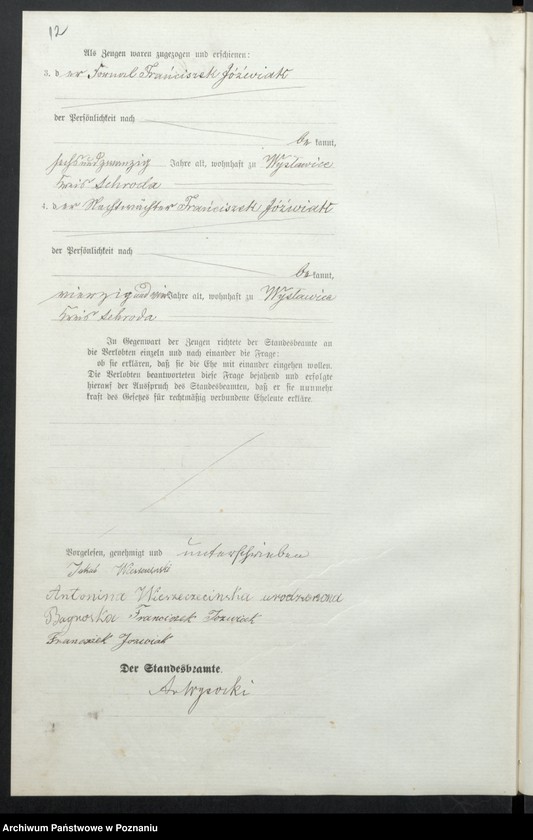 12
Als Zeugen waren zugezogen und erschienen:
3. der Fornal Franciszek Jóźwiak
der Persönlichkeit nach
bekannt,
sechsundzwanzig Jahre alt, wohnhaft zu Wysławice
Kreis Schroda
4. der Nachtwächter Franciszek Jóźwiak
der Persönlichkeit nach
bekannt,
vierzig und vier Jahre alt, wohnhaft zu Wysławice
Kreis Schroda
In Gegenwart der Zeugen richtete der Standesbeamte an
die Verlobten einzeln und nach einander die Frage:
ob sie erklären, daß sie die Ehe mit einander eingehen wollen.
Die Verlobten beantworteten diese Frage bejahend und erfolgte
hierauf der Ausspruch des Standesbeamten, daß er sie nunmehr
kraft des Gesetzes für rechtmäßig verbundene Eheleute erkläre.
Vorgelesen, genehmigt und unterschrieben
Jakób
Antonina urodzona
Franciszek Jozwiak
Franciszek Jozwiak
Der Standesbeamte.
Archiwum Państwowe w Poznaniu